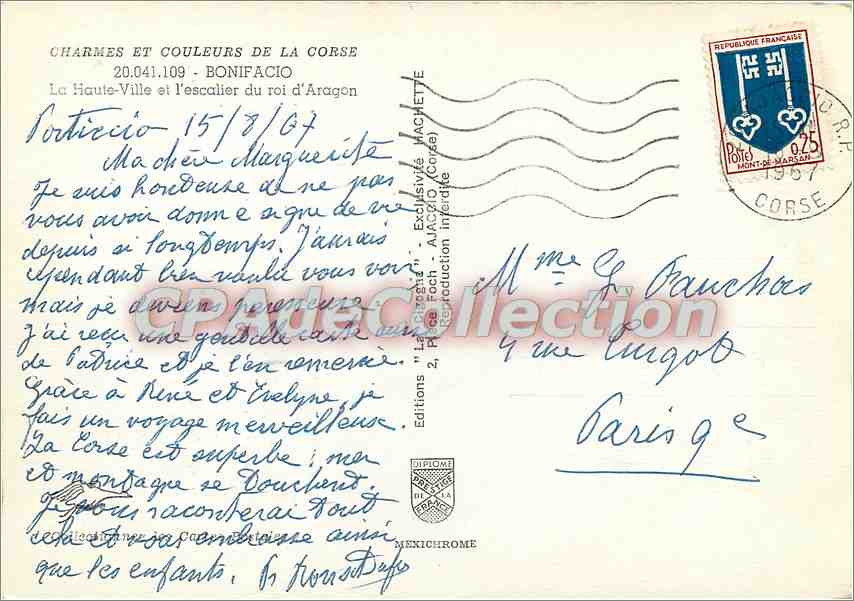 CHARMES ET COULEURS DE LA CORSE
20.041.109 - BONIFACIO
La Haute-Ville et l'escalier du roi d'Aragon
Porticcio 15/8/67
Ma chère Marguerite
Je suis honteuse de ne pas
vous avoir donné signe de vie
depuis si longtemps. J'aurais
cependant bien voulu vous voir
mais je deviens paresseuse.
J'ai reçu une gentille carte aussi
de Patrice et je l'en remercie.
Grâce à René et Evelyne, je
fais un voyage merveilleux.
La Corse est superbe : mer
et montagne se touchent.
Je vous raconterai tout
cela et vous embrasse ainsi
que les enfants.
Collectionner les Cartes Postales
Editions "La Cigogne" - Exclusivité HACHETTE
2, Place Foch - AJACCIO (Corse)
Reproduction interdite
DIPLOME
PRESTIGE
DE LA
FRANCE
MEXICHROME
REPUBLIQUE FRANÇAISE
POSTES 0,25
MONT-DE-MARSAN
R.P.
1967
CORSE
Mme G. Fauchois
4 rue Turgot
Paris 9e
CPAdeCollection